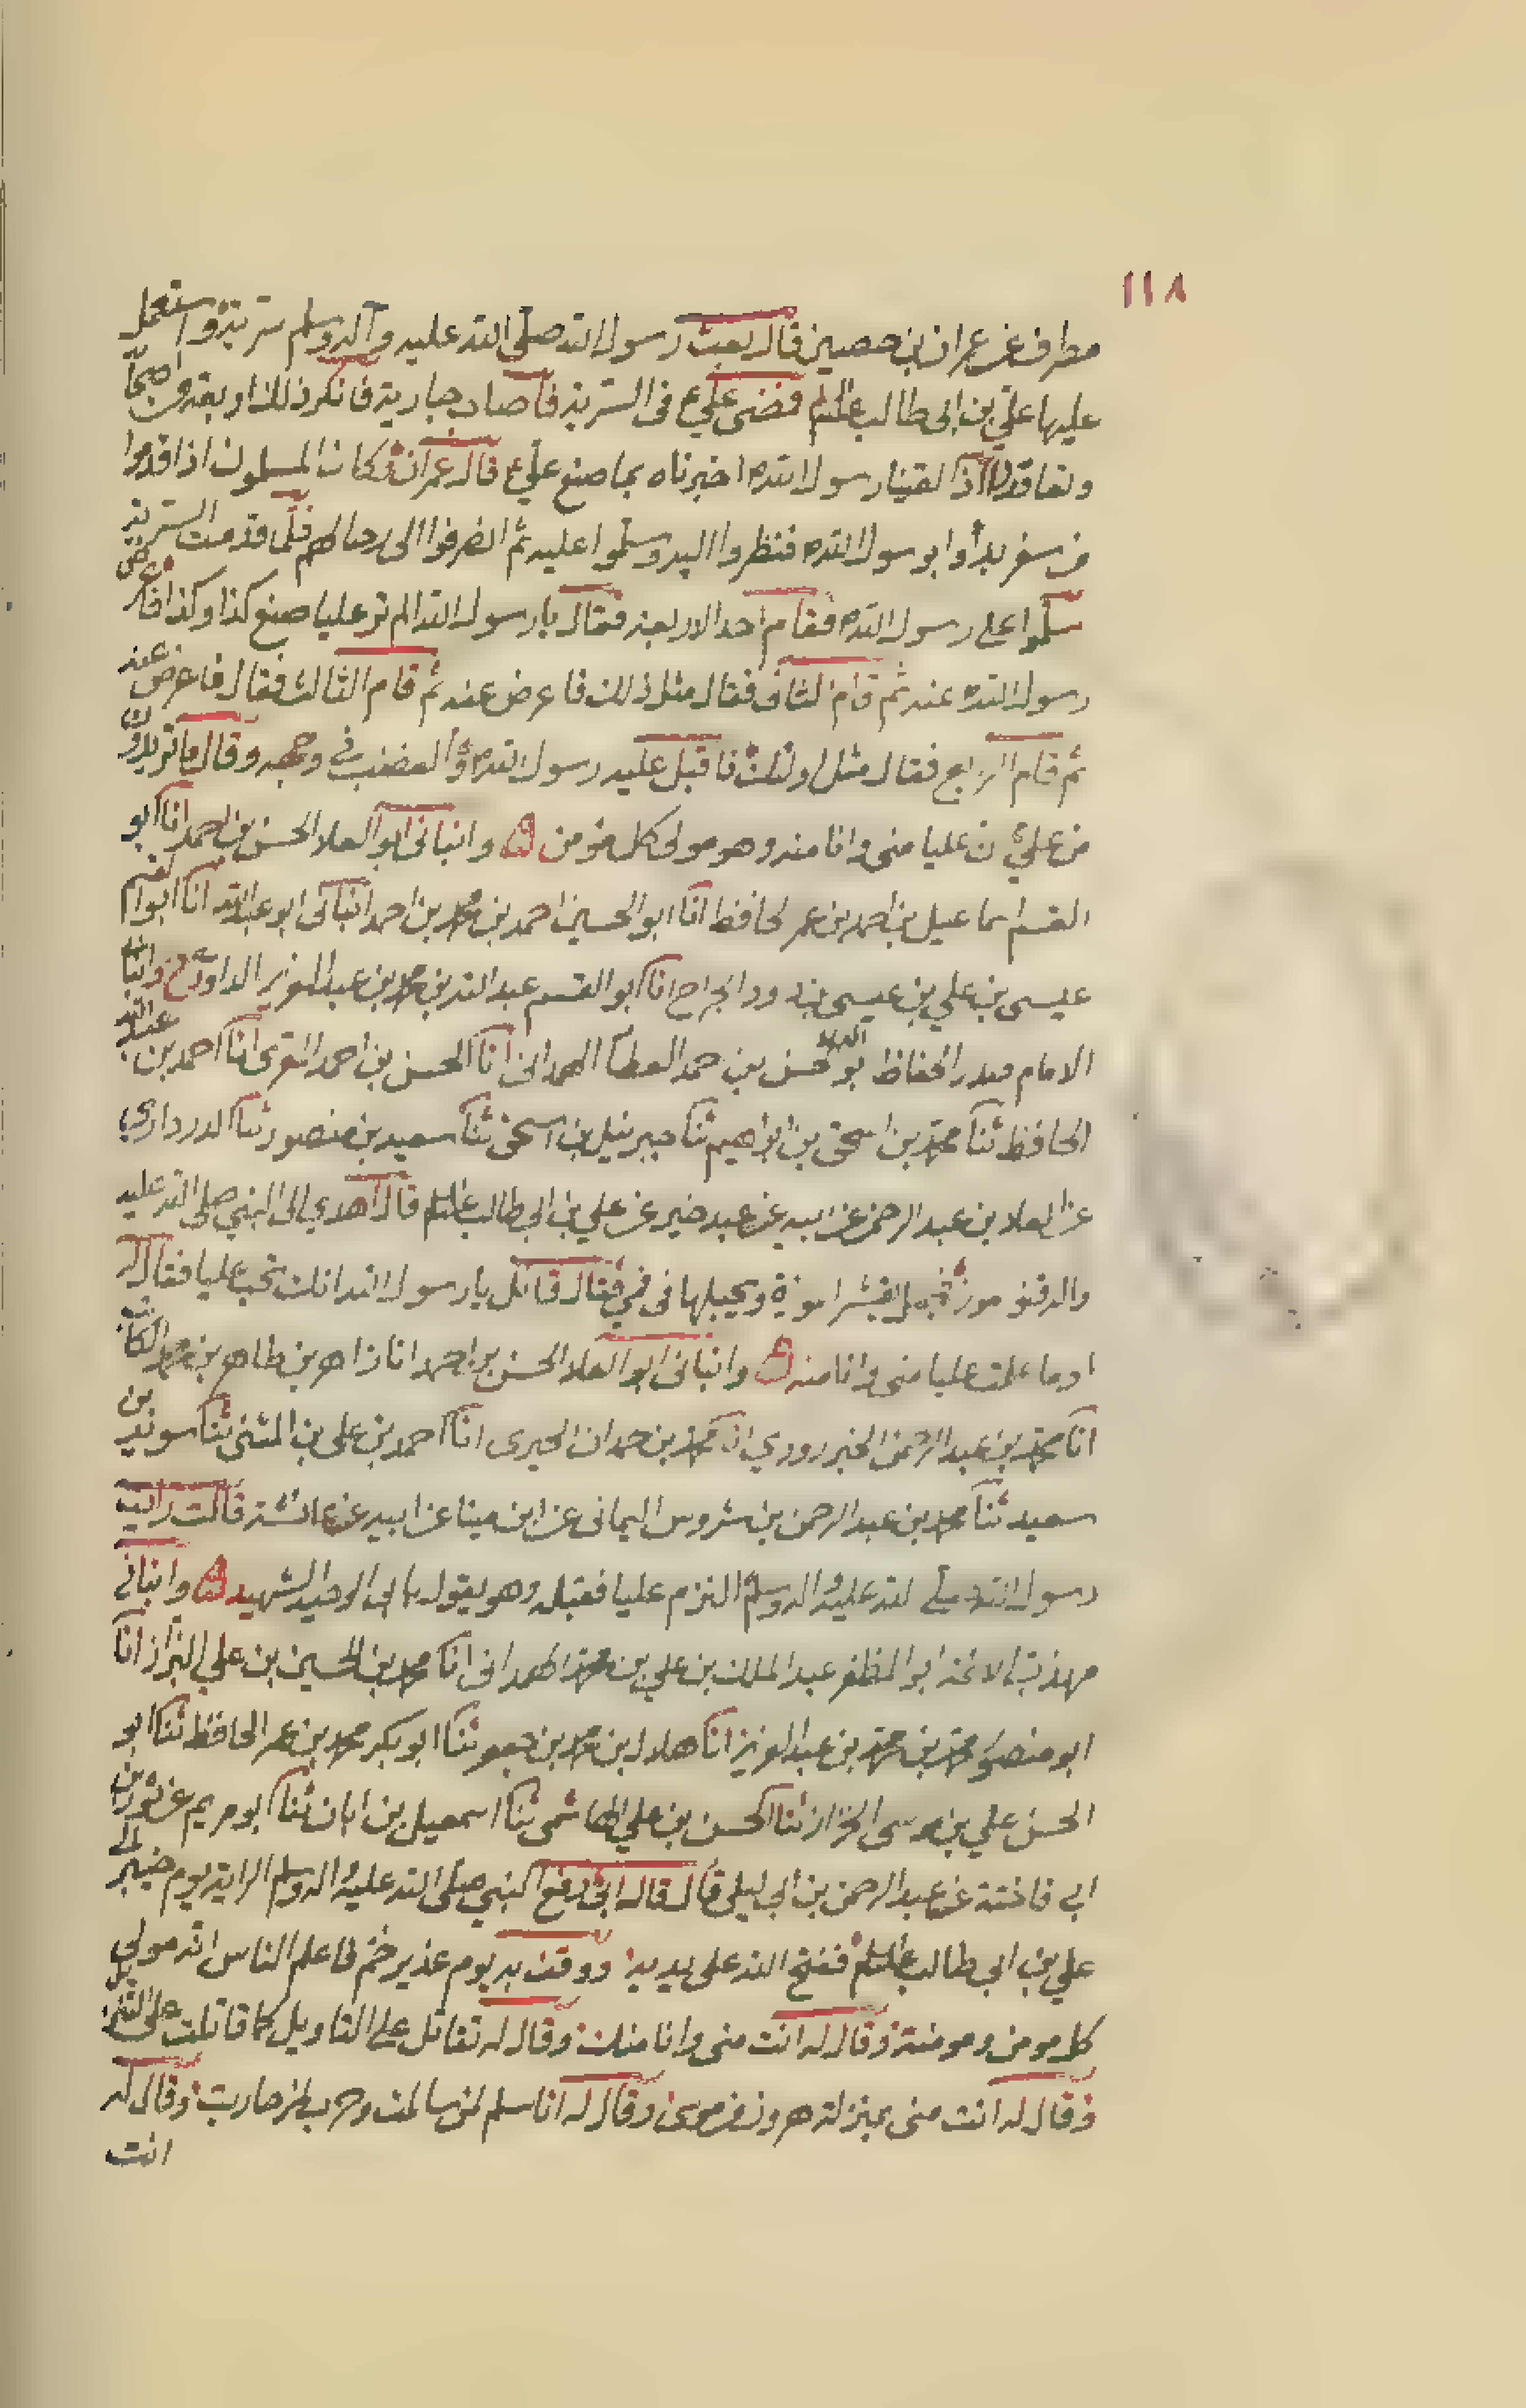 ١١٨
مطرف عن عمران بن حصين قال بعث رسول الله صلى الله عليه وآله وسلم سرية واستعمل
عليها علي بن ابي طالب عليلم فمضى علي ع في السرية فاصاب جارية فانكر ذلك اربعة من اصحا
وتعاقدوا اذا لقينا رسول الله ص اخبرناه بما صنع علي ع قال عمران وكان المسلمون اذا قدموا
من سفر بدأوا برسول الله ص فنظروا اليه وسلموا عليه ثم انصرفوا الى رحالهم فلما قدمت السرية
سلموا على رسول الله ص فقام احد الاربعة فقال يا رسول الله الم تر عليا صنع كذا وكذا فاعرض
رسول الله ص عنه ثم قام الثاني فقال مثل ذلك فاعرض عنه ثم قام الثالث فقال فاعرض عنه
ثم قام الرابع فقال مثل اولئك فاقبل عليه رسول الله ص والغضب في وجهه وقال ما تريدون
من علي ان عليا مني وانا منه وهو مولى كل مؤمن وانباني ابو العلا الحسن بن احمد انا ابو
القسم اسماعيل بن احمد بن عمر الحافظ انا ابو الحسين احمد بن محمد بن احمد انباني ابو عبد الله انا ابو القسم
عيسى بن علي بن عيسى بن داود الجراح انا ابو القسم عبد الله بن محمد بن عبد العزيز
الامام صدر الحفاظ ابو العلا الحسن بن احمد العطا الهمداني انا الحسن بن احمد المقري انا احمد بن عبد الله
الحافظ ثنا محمد بن اسحق بن ابراهيم ثنا جبرئيل بن اسحق ثنا سعيد بن منصور ثنا الدرداري
عن العلا بن عبد الرحمن عن ابيه عن عبد خير عن علي بن ابي طالب عليلم قال اهدي الى النبي صلى الله عليه
واله قنو موز فجعل يقشر الموزة ويجعلها في في فقال قائل يا رسول الله انك تحب عليا فقال له
اوما علمت عليا مني وانا منه وانباني ابو العلا الحسن بن احمد انا زاهر بن طاهر بن محمد الكاتب
انا محمد بن عبد الرحمن الخبزرودي انا محمد بن حمدان الحيرى انا احمد بن علي بن المثنى ثنا سويد بن
سعيد ثنا محمد بن عبد الرحمن بن شروس اليماني عن ابن مينا عن ابيه عن عائشة قالت رايت
رسول الله صلى الله عليه واله وسلم التزم عليا فقبله وهو يقول بابي الوحيد الشهيد وانباني
مهذب الائمة ابو المظفر عبد الملك بن علي بن محمد الهمداني انا محمد بن الحسين بن علي البزاز انا
ابو منصور محمد بن محمد بن عبد العزيز انا هلال بن محمد بن جعفر ثنا ابو بكر محمد بن عمر الحافظ ثنا ابو
الحسن علي بن موسى الخزاز ثنا الحسن بن علي الهاشمي ثنا اسمعيل بن ابان ثنا ابو مريم عن ثور بن
ابي فاختة عن عبد الرحمن بن ابي ليلى قال قال ابي دفع النبي صلى الله عليه واله وسلم الراية يوم خيبر الى
علي بن ابي طالب عليلم ففتح الله على يديه ووقف به يوم غدير خم فاعلم الناس انه مولى
كل مومن ومومنة وقال له انت مني وانا منك وقال له تقاتل على التاويل كما قاتلت على التنزيل
وقال له انت مني بمنزلة هرون من موسى وقال له انا سلم لمن سالمت وحرب لمن حاربت وقال له
انت